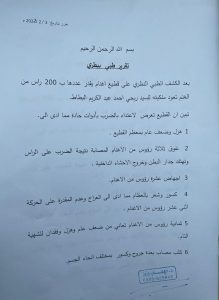 حرر بتاريخ 3 / 2 / 2024 م
بسم الله الرحمن الرحيم
تقرير طبي بيطري
بعد الكشف الطبي النظري على قطيع اغنام يقدر عددها ب 200 رأس من
الغنم تعود ملكيته للسيد ربحي احمد عبد الكريم البطاط.
تبين ان القطيع تعرض لاعتداء بالضرب بأدوات حادة مما ادى الى.
1 هزل وضعف عام بمعظم القطيع .
2 نفوق ثلاثة رؤوس من الاغنام المصابة نتيجة الضرب على الراس
وتهتك جدار البطن وخروج الاحشاء الداخلية .
3 اجهاض عشرة رؤوس من الاغنام .
4 كسور وشعر بالعظام مما ادى الى العراج وعدم المقدرة على الحركة
اثنى عشر رؤوس من الاغنام .
5 ثمانية رؤوس من الاغنام تعاني من ضعف عام وهزل وفقدان للشهية
التام .
6 كلب مصاب بعدة جروح وكسور بمختلف انحاء الجسم.